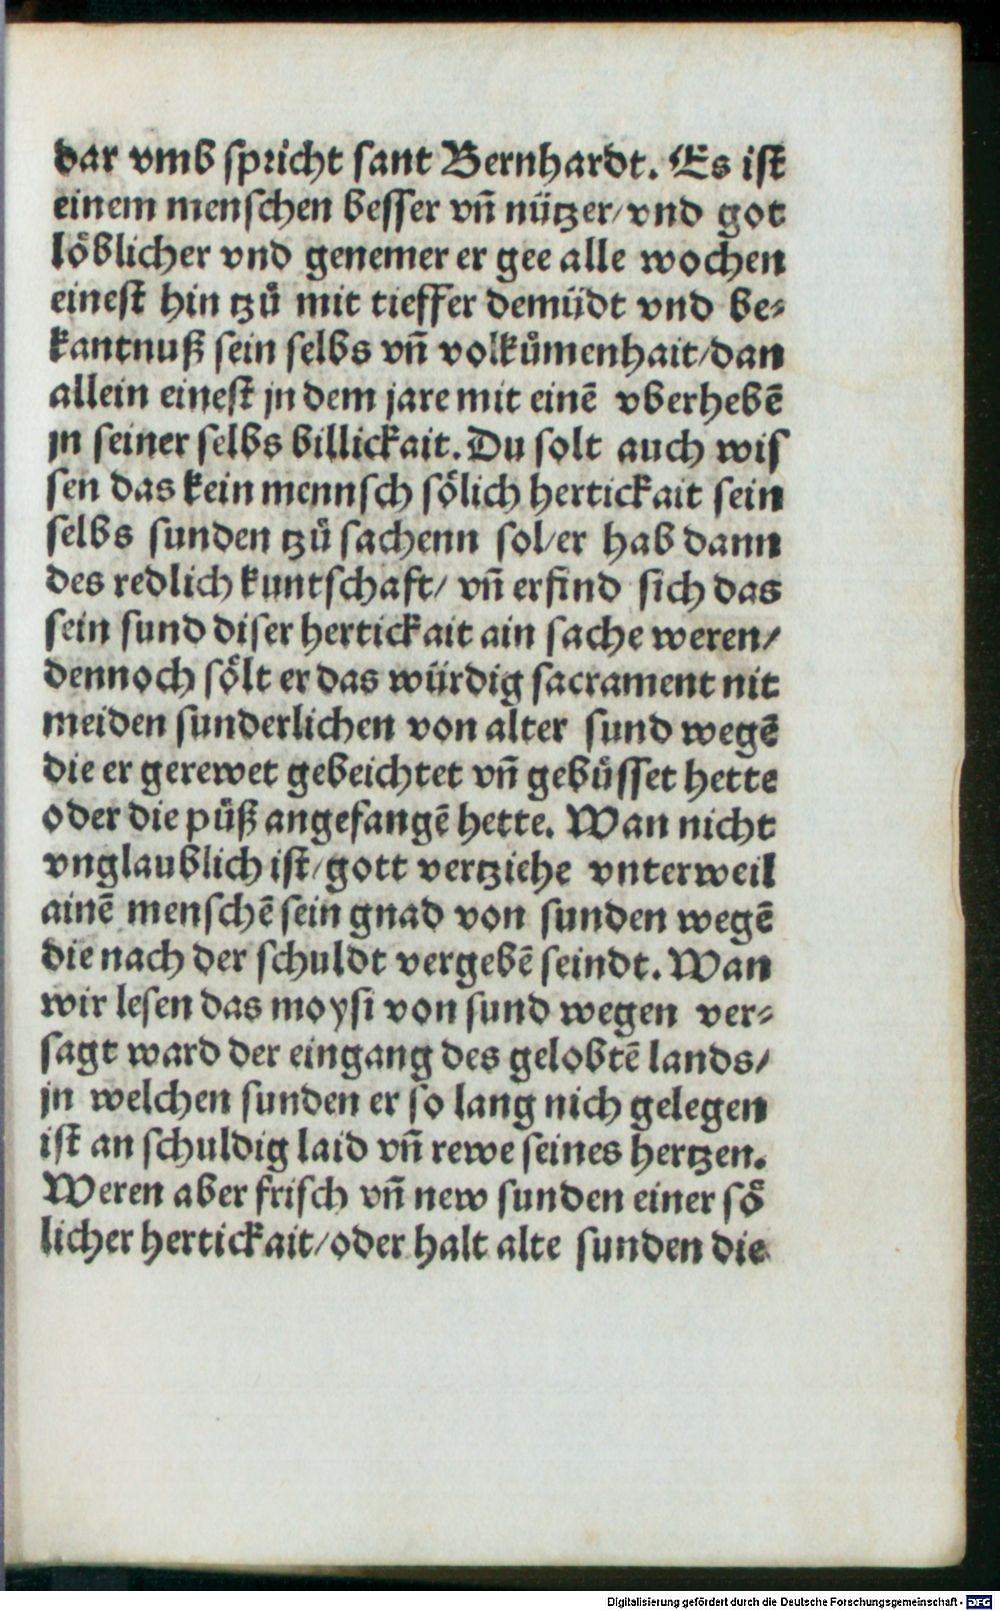 dar vmb spricht sant Bernhardt. Es ist
einem menschen besser vn̄ nützer/vnd got
löblicher vnd genemer er gee alle wochen
einest hin tzů mit tieffer demüdt vnd be⸗
kantnuß sein selbs vn̄ volkůmenhait/dan
allein einest jn dem jare mit einē vberhebē
jn seiner selbs billickait. Du solt auch wis
sen das kein mennsch sölich hertickait sein
selbs sunden tzů sachenn sol/er hab dann
des redlich kuntschaft/ vn̄ erfind sich das
sein sund diser hertickait ain sache weren/
dennoch sölt er das würdig sacrament nit
meiden sunderlichen von alter sund wegē
die er gerewet gebeichtet vn̄ gebůsset hette
oder die půß angefangē hette. Wan nicht
vnglaublich ist/gott vertziehe vnterweil
ainē menschē sein gnad von sunden wegē
die nach der schuldt vergebē seindt. Wan
wir lesen das moysi von sund wegen ver⸗
sagt ward der eingang des gelobtē lands/
jn welchen sunden er so lang nich gelegen
ist an schuldig laid vn̄ rewe seines hertzen.
Weren aber frisch vn̄ new sunden einer sö
licher hertickait/oder halt alte sunden die
Digitalisierung gefördert durch die Deutsche Forschungsgemeinschaft - DFG